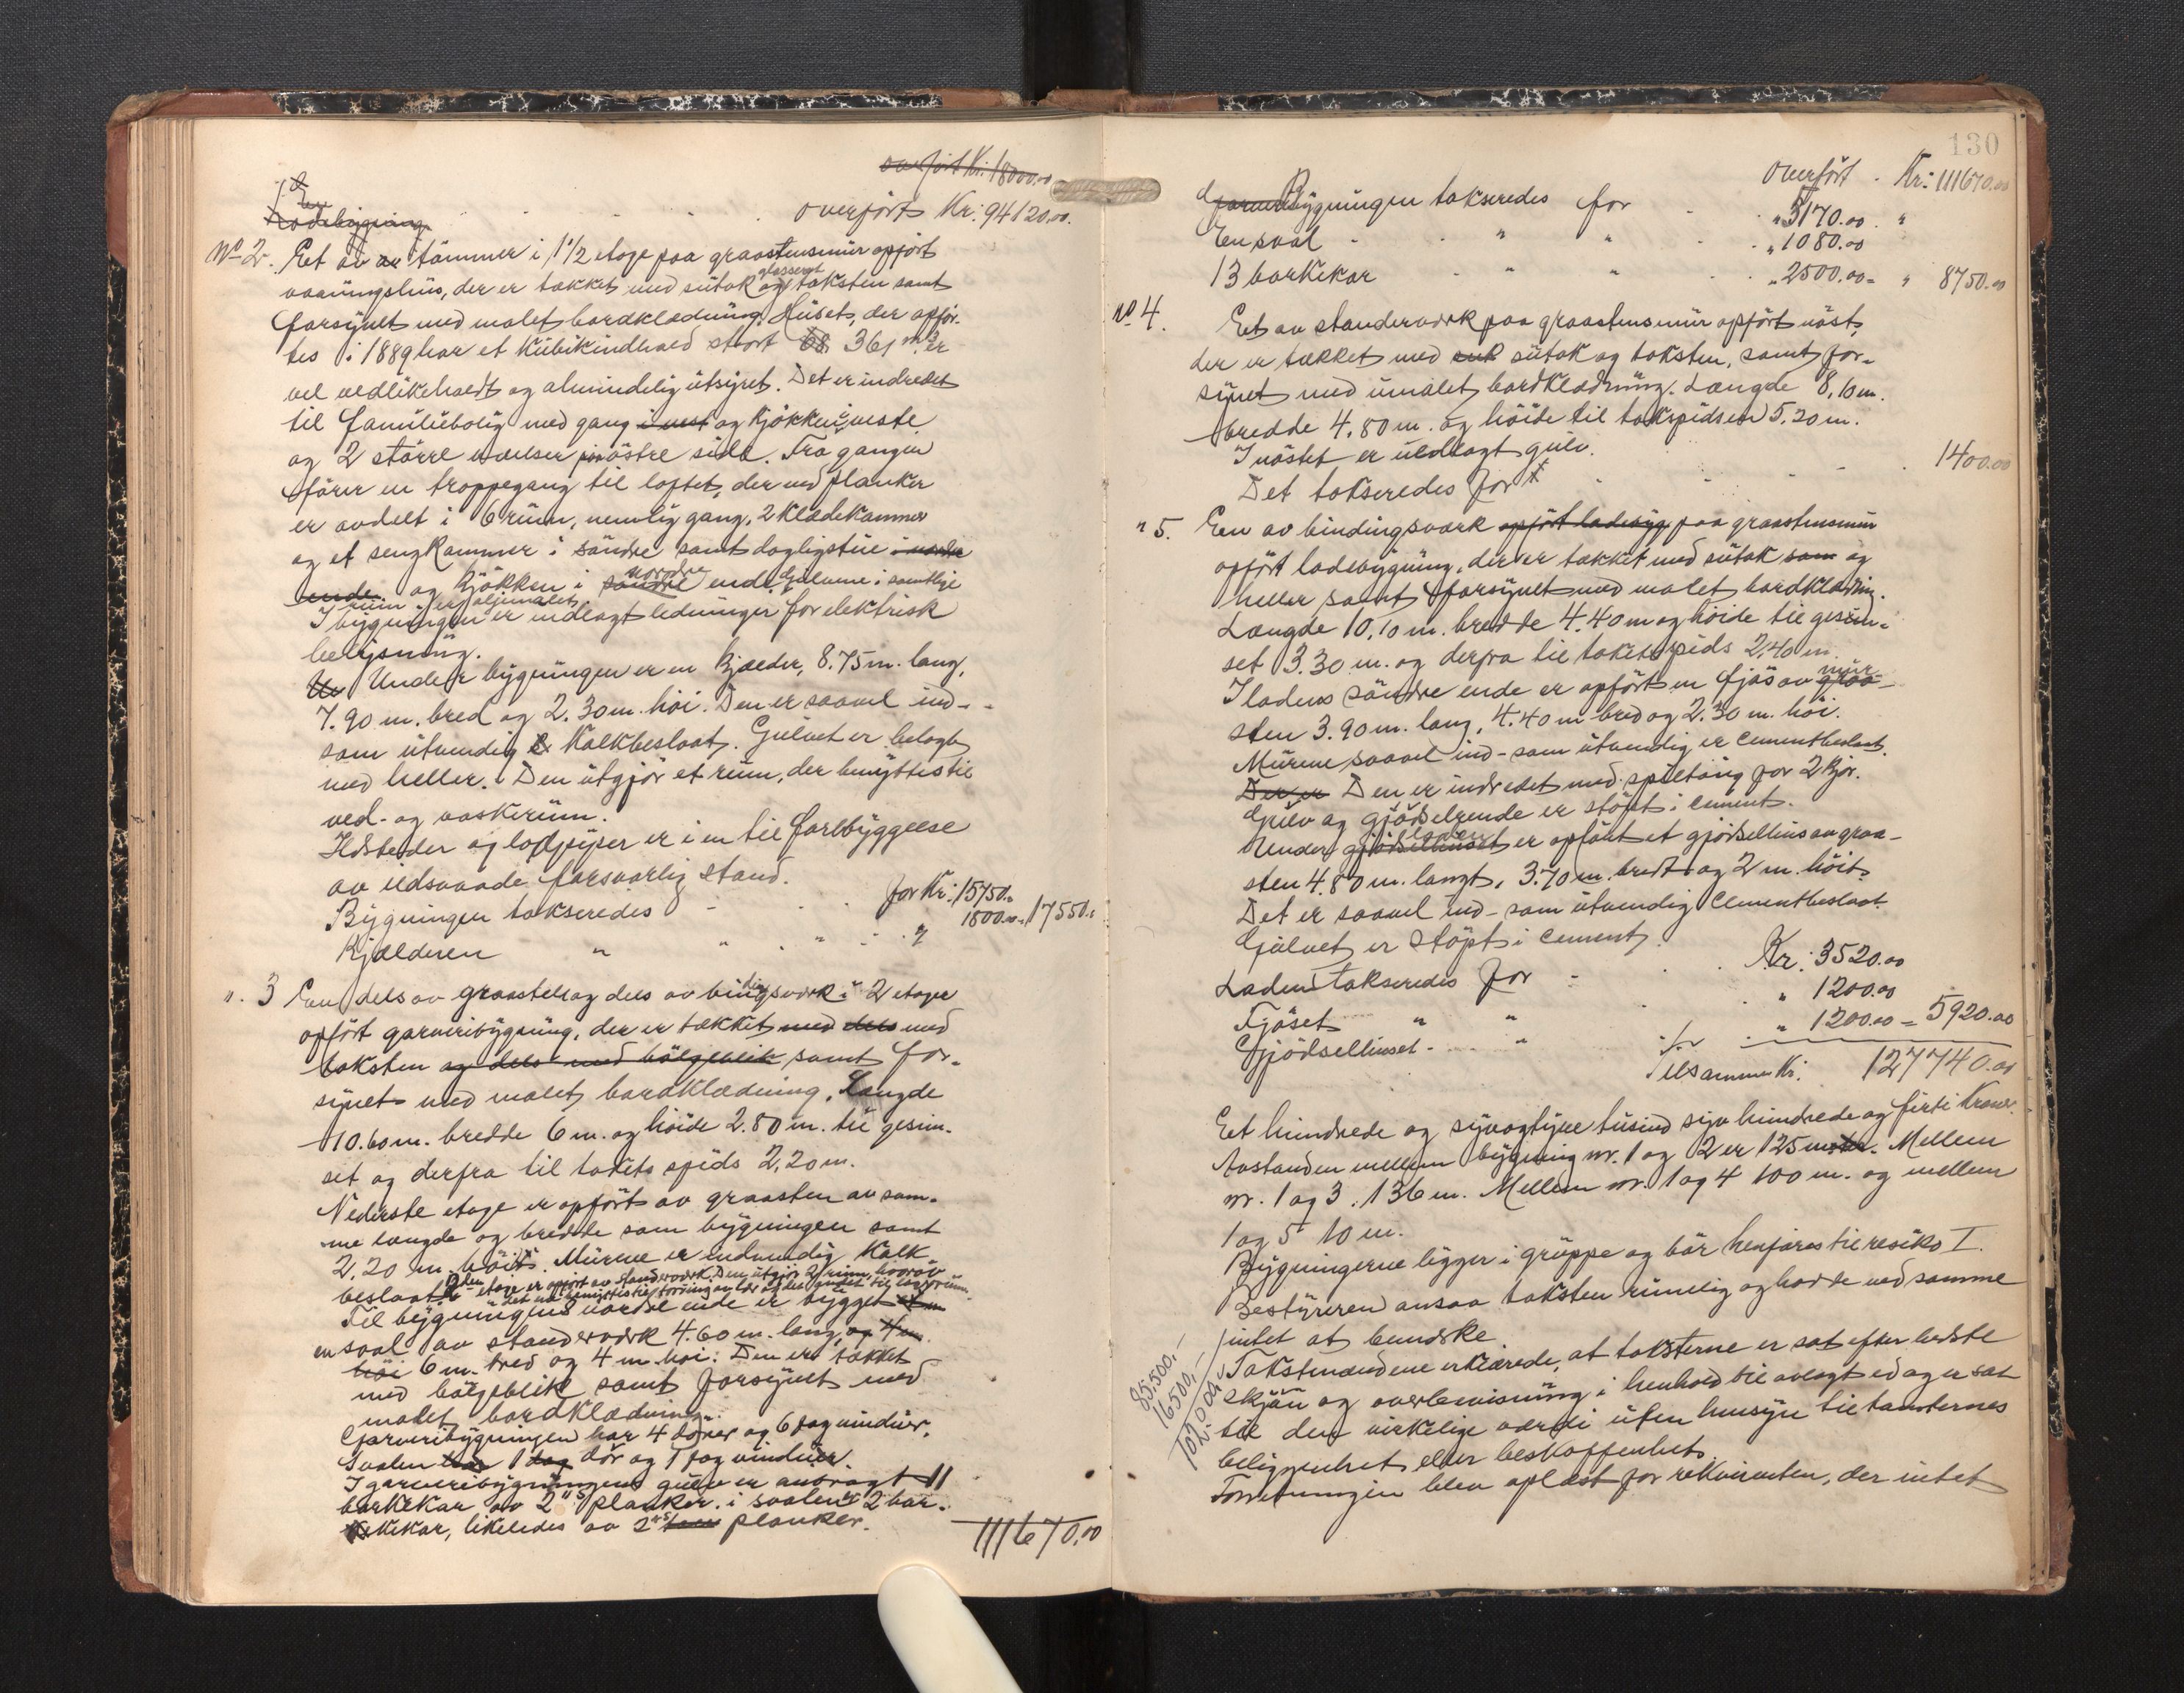 overført Kr. 18000.00
En
Ladebygning
overført Kr: 94120.00.
No 2. Et av av tømmer i 1 1/2 etage paa graastensmur opført
vaaningshus, der er tækket med sutak og glasseret taksten samt
forsynet med malet bordklædning. Huset, der opfør-
tes i 1889 har et kubikindhold stort 361 m3. er
vel vedlikeholdt og almindelig utstyret. Det er indredet
til familiebolig med gang i vest og kjøkken i vestre
og 2 større værelser i østre side. Fra gangen
fører en trappegang til loftet, der ved planker
er avdelt i 6 rum, nemlig gang, 2 klædekammer
og et sengkammer i søndre samt dagligstue i nordre
ende og kjøkken i søndre nordre ende. Gulvene i samtlige
rum er oljemalet.
I bygningen er indlagt ledninger for elektrisk
belysning.
Un Under bygningen er en kjælder, 8.75 m. lang,
7.90 m. bred og 2.30 m. høi. Den er saavel ind-
som utvendig kalkbeslaat. Gulvet er belagt
med heller. Den utgjør et rum, der benyttes til
ved- og vaskerum.
Ildsteder og lofspiper er i en til forebyggelse
av ildsvaade forsvarlig stand.
Bygningen takseredes - for Kr: 15750.00
Kjælderen " " " " 1800.00 = 17550.00
" 3 En dels av graasten og dels av bindingsverk i 2 etager
opført garveribygning, der er tækket med dels med
taksten og dels med bølgeblik samt for-
synet med malet bordklædning. Længde
10.60 m. bredde 6 m. og høide 2.80 m. til gesim-
set og derfra til takets spids 2,20 m.
Nederste etage er opført av graasten av sam-
me længde og bredde som bygningen samt
2.20 m. høit. Murene er indvendig kalk
beslaat. 2den etage er opført av standerverk. Den utgjør 2 rum, hvorav
det ene benyttes til tørring av lær og det andet til lagerrum.
Til bygningens nordre ende er bygget
en sval av standerverk 4.60 m. lang, og 4 m.
høi 6 m. bred og 4 m. høi. Den er tækket
med bølgeblik samt forsynet med
malet bordklædning.
Garveribygningen har 4 dører og 6 fag vinduer.
Svalen har 1 dør og 1 fag vinduer.
I garveribygningens gulv er anbragt 11
barkekar av 2" planker. i svalen 2 bar-
kekar, likeledes av 2" planker.
111670,00
130
overført . Kr: 111670.00
Bygningen takseredes for " 5170.00 "
En sval - " " " 1080.00
13 barkekar - " " " 2500.00 = " 8750.00
No 4. Et av standerverk paa graastensmur opført nøst,
der er tækket med sutak og taksten, samt for-
synet med umalet bordklædning. Længde 8,10 m.
bredde 4.80 m. og høide til takspidsen 5.20 m.
I nøstet er uldlagt gulv.
Det takseredes for 1400.00
" 5. En av bindingsverk opført ladebyg paa graastensmur
opført ladebygning, der er tækket med sutak som og
heller samt forsynet med malet bordklædning.
Længde 10,10 m. bredde 4.40 m og høide til gesim-
set 3.30 m. og derfra til takets spids 2,40 m.
I ladens søndre ende er opført en fjøs av graa- mur
sten 3.90 m. lang, 4.40 m bred og 2.30 m. høi.
Murene saavel ind- som utvendig er cementbeslaat.
Der er Den er indredet med spiltaug for 2 kjør.
Gulv og gjødselrende er støpt i cement.
Under gjødselhuset laden er opført et gjødselhus av graa-
sten 4.80 m. langt, 3.70 m. bredt og 2 m. høit.
Det er saavel ind- som utvendig cementbeslaat.
Gulvet er støpt i cement.
Laden takseredes for - Kr: 3520.00
Fjøset " " " 1200.00
Gjødselhuset " " 1200.00 = 5920.00
Tilsammen Kr. 127740.00
Et hundrede og syvogtyve tusind syv hundrede og firti kroner.
Avstanden mellem bygning nr. 1 og 2 er 125 m. Mellem
nr. 1 og 3. 136 m. Mellem nr. 1 og 4 100 m. og mellem
1 og 5 10 m.
Bygningerne ligger i gruppe og bør henføres til resiko I.
Bestyreren ansaa taksten rimelig og hadde ved samme
intet at bemerke.
Takstmændene erklærede, at taksterne er sat efter bedste
skjøn og overbevisning i henhold til avlagt ed og er sat
til den virkelige værdi uten hensyn til tomternes
beliggenhet eller beskaffenhet.
Forretningen blev oplæst for rekvirenten, der intet
85.500,-
16500,-
102000